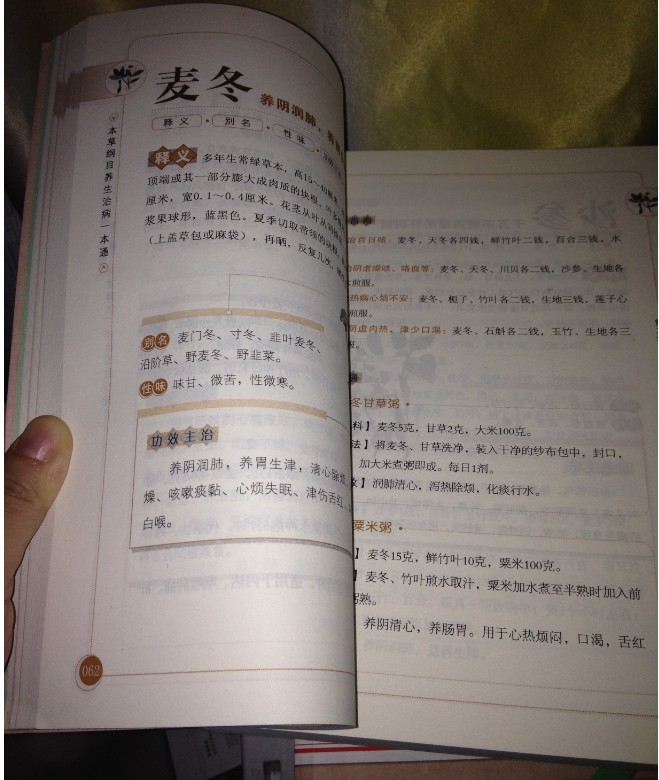 麦冬
养阴润肺,
释义 · 别名 · 性味 ·
本草纲目养生治病一本通
释义 多年生常绿草本,高15~40厘米
顶端或其一部分膨大成肉质的块根
厘米,宽0.1~0.4厘米。花茎从叶
浆果球形,蓝黑色。夏季切取带须的块根,
(上盖草包或麻袋),再晒,反复几次,
别名 麦门冬、寸冬、韭叶麦冬、
沿阶草、野麦冬、野韭菜。
性味 味甘、微苦,性微寒。
功效主治
养阴润肺,养胃生津,清心除烦
燥、咳嗽痰黏、心烦失眠、津伤舌红、
白喉。
062
百日咳:麦冬,天冬各四钱,鲜竹叶二钱,百合三钱,水
阴虚燥咳、咯血等:麦冬、天冬、川贝各二钱,沙参、生地各
煎服。
热病心烦不安:麦冬、栀子、竹叶各二钱,生地三钱,莲子心
煎服。
阴虚内热、津少口渴:麦冬、石斛各二钱,玉竹、生地各三
服。
冬甘草粥 ·
料】麦冬5克,甘草2克,大米100克。
法】将麦冬、甘草洗净,装入干净的纱布包中,封口,
加大米煮粥即成。每日1剂。
】润肺清心,泻热除烦,化痰行水。
粟米粥 ·
】麦冬15克,鲜竹叶10克,粟米100克。
】麦冬、竹叶煎水取汁,粟米加水煮至半熟时加入前
粥熟。
养阴清心,养肠胃。用于心热烦闷,口渴,舌红